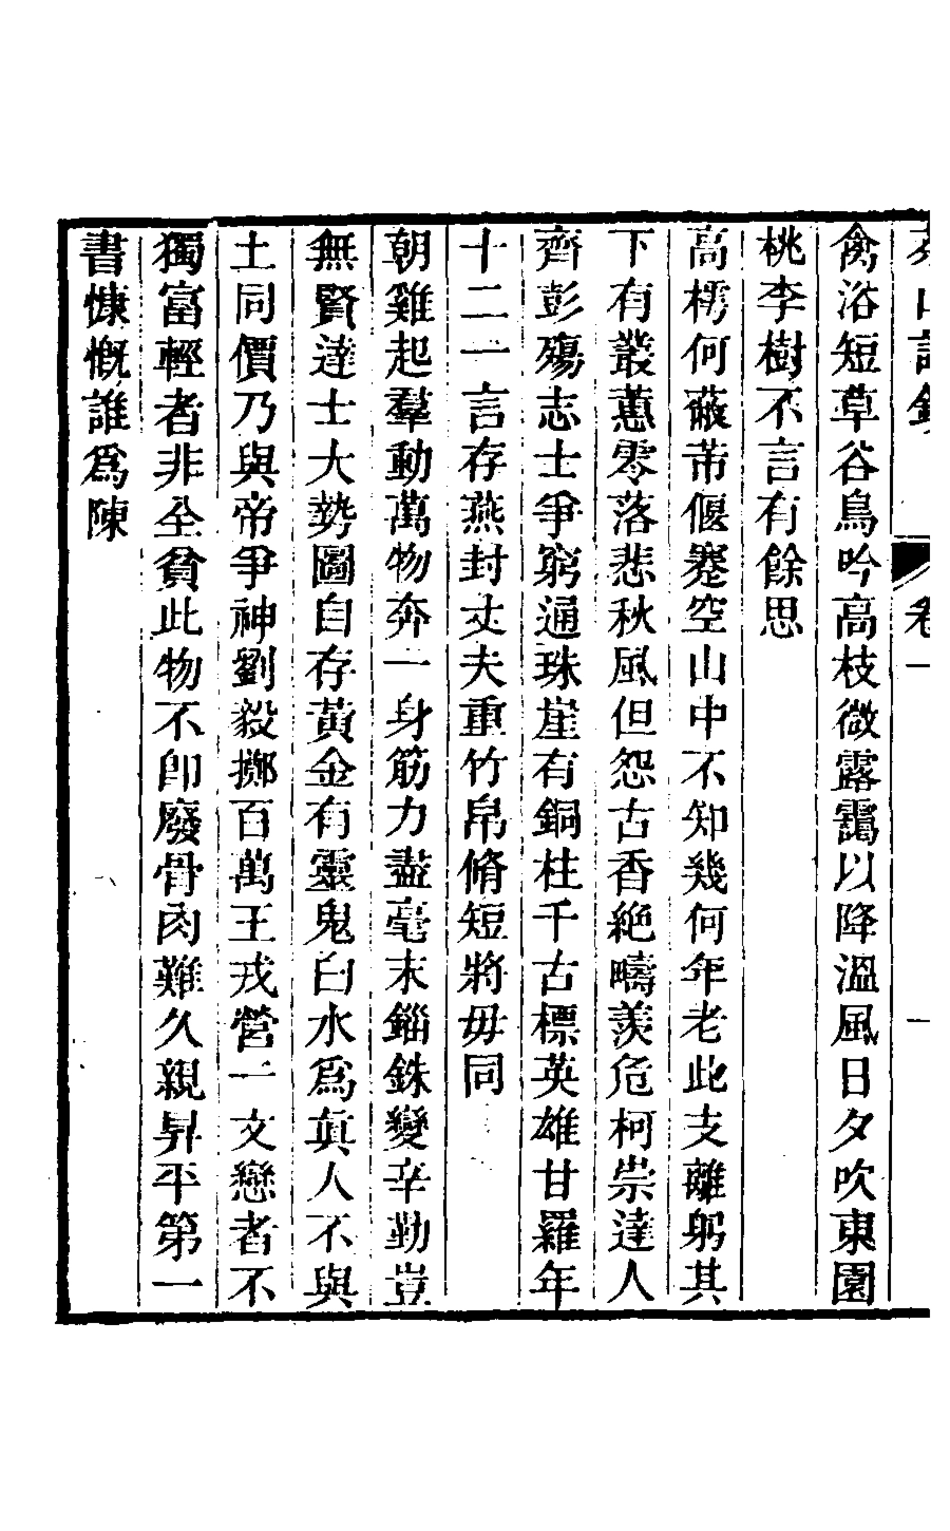 山詩鈔　卷一　一
禽浴短草谷鳥吟高枝微露靄以降溫風日夕吹東園
桃李樹不言有餘思
高樗何蔽芾偃蹇空山中不知幾何年老此支離躬其
下有叢蕙零落悲秋風但怨古香絶疇羨危柯崇達人
齊彭殤志士爭窮通珠崖有銅柱千古標英雄甘羅年
十二一言存燕封丈夫重竹帛脩短將毋同
朝雞起羣動萬物奔一身筋力盡毫末錙銖變辛勤豈
無賢達士大勢圖自存黃金有靈鬼白水爲真人不與
土同價乃與帝爭神劉毅擲百萬王戎營一文戀者不
獨富輕者非全貧此物不卽廢骨肉難久親昇平第一
書慷慨誰爲陳